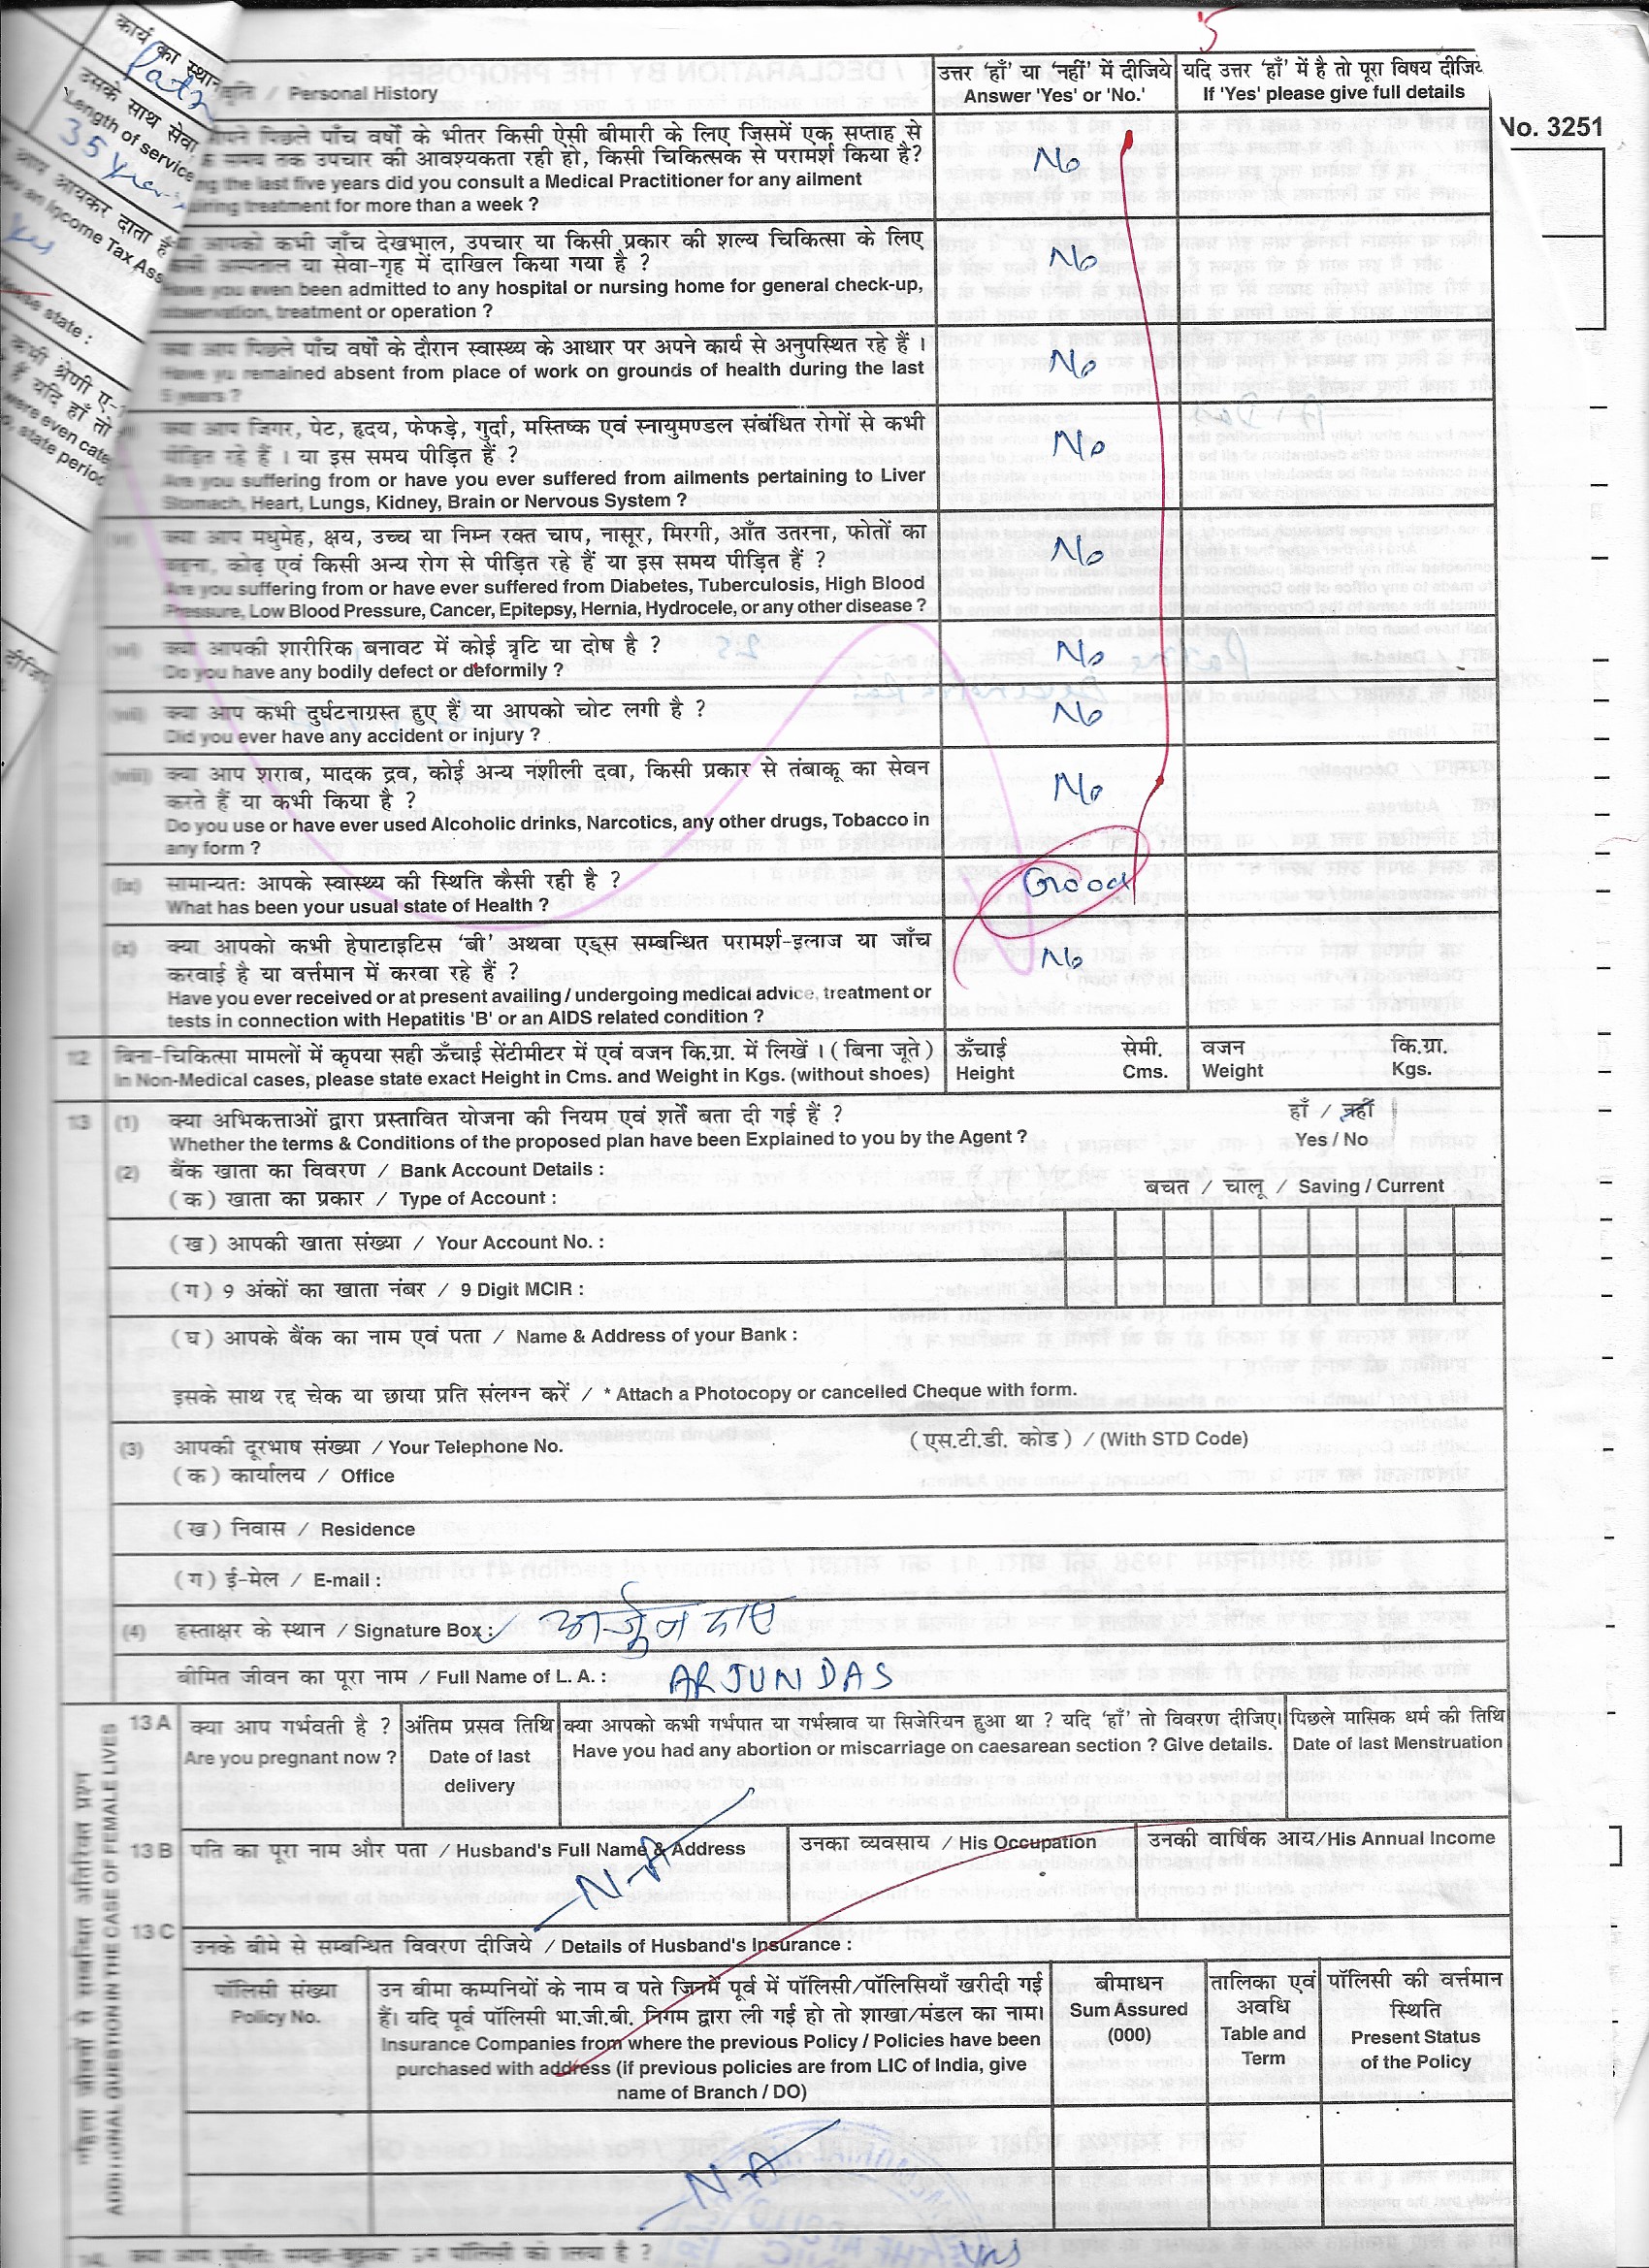 5
कार्य का स्थान
उसके साथ सेवा
Length of service
आयकर दाता
Income Tax Ass
state :
कभी श्रेणी ए-
हैं यदि हाँ तो
were even cate
state period
No. 3251
/ Personal History
उत्तर ‘हाँ’ या ‘नहीं’ में दीजिये
Answer 'Yes' or 'No.'
यदि उत्तर ‘हाँ’ में है तो पूरा विषय दीजिये
If 'Yes' please give full details
पिछले पाँच वर्षों के भीतर किसी ऐसी बीमारी के लिए जिसमें एक सप्ताह से
समय तक उपचार की आवश्यकता रही हो, किसी चिकित्सक से परामर्श किया है?
ng the last five years did you consult a Medical Practitioner for any ailment
treatment for more than a week ?
No
आपको कभी जाँच देखभाल, उपचार या किसी प्रकार की शल्य चिकित्सा के लिए
अस्पताल या सेवा-गृह में दाखिल किया गया है ?
Have you even been admitted to any hospital or nursing home for general check-up,
observation, treatment or operation ?
No
क्या आप पिछले पाँच वर्षों के दौरान स्वास्थ्य के आधार पर अपने कार्य से अनुपस्थित रहे हैं ।
Have yu remained absent from place of work on grounds of health during the last
5 years ?
No
क्या आप जिगर, पेट, हृदय, फेफड़े, गुर्दा, मस्तिष्क एवं स्नायुमण्डल संबंधित रोगों से कभी
पीड़ित रहे हैं । या इस समय पीड़ित हैं ?
Are you suffering from or have you ever suffered from ailments pertaining to Liver
Stomach, Heart, Lungs, Kidney, Brain or Nervous System ?
No
क्या आप मधुमेह, क्षय, उच्च या निम्न रक्त चाप, नासूर, मिरगी, आँत उतरना, फोतों का
बढ़ना, कोढ़ एवं किसी अन्य रोग से पीड़ित रहे हैं या इस समय पीड़ित हैं ?
Are you suffering from or have ever suffered from Diabetes, Tuberculosis, High Blood
Pressure, Low Blood Pressure, Cancer, Epitepsy, Hernia, Hydrocele, or any other disease ?
No
(vi) क्या आपकी शारीरिक बनावट में कोई त्रृटि या दोष है ?
Do you have any bodily defect or deformily ?
No
(vii) क्या आप कभी दुर्घटनाग्रस्त हुए हैं या आपको चोट लगी है ?
Did you ever have any accident or injury ?
No
(viii) क्या आप शराब, मादक द्रव, कोई अन्य नशीली दवा, किसी प्रकार से तंबाकू का सेवन
करते हैं या कभी किया है ?
Do you use or have ever used Alcoholic drinks, Narcotics, any other drugs, Tobacco in
any form ?
No
(ix) सामान्यतः आपके स्वास्थ्य की स्थिति कैसी रही है ?
What has been your usual state of Health ?
Good
(x) क्या आपको कभी हेपाटाइटिस ‘बी’ अथवा एड्स सम्बन्धित परामर्श-इलाज या जाँच
करवाई है या वर्त्तमान में करवा रहे हैं ?
Have you ever received or at present availing / undergoing medical advice, treatment or
tests in connection with Hepatitis 'B' or an AIDS related condition ?
No
12 बिना-चिकित्सा मामलों में कृपया सही ऊँचाई सेंटीमीटर में एवं वजन कि.ग्रा. में लिखें । ( बिना जूते )
In Non-Medical cases, please state exact Height in Cms. and Weight in Kgs. (without shoes)
ऊँचाई सेमी. वजन कि.ग्रा.
Height Cms. Weight Kgs.
13 (1) क्या अभिकत्ताओं द्वारा प्रस्तावित योजना की नियम एवं शर्तें बता दी गई हैं ? हाँ / नहीं
Whether the terms & Conditions of the proposed plan have been Explained to you by the Agent ? Yes / No
(2) बैंक खाता का विवरण / Bank Account Details :
(क) खाता का प्रकार / Type of Account : बचत / चालू / Saving / Current
(ख) आपकी खाता संख्या / Your Account No. :
(ग) 9 अंकों का खाता नंबर / 9 Digit MCIR :
(घ) आपके बैंक का नाम एवं पता / Name & Address of your Bank :
इसके साथ रद्द चेक या छाया प्रति संलग्न करें / * Attach a Photocopy or cancelled Cheque with form.
(3) आपकी दूरभाष संख्या / Your Telephone No. (एस.टी.डी. कोड) / (With STD Code)
(क) कार्यालय / Office
(ख) निवास / Residence
(ग) ई-मेल / E-mail :
(4) हस्ताक्षर के स्थान / Signature Box : अर्जुन दास
बीमित जीवन का पूरा नाम / Full Name of L. A. : ARJUN DAS
महिला जीवनों से सम्बंधित अतिरिक्त प्रश्न
ADDITIONAL QUESTION IN THE CASE OF FEMALE LIVES
13 A क्या आप गर्भवती है ?
Are you pregnant now ?
अंतिम प्रसव तिथि
Date of last
delivery
क्या आपको कभी गर्भपात या गर्भस्राव या सिजेरियन हुआ था ? यदि ‘हाँ’ तो विवरण दीजिए।
Have you had any abortion or miscarriage on caesarean section ? Give details.
पिछले मासिक धर्म की तिथि
Date of last Menstruation
13 B पति का पूरा नाम और पता / Husband's Full Name & Address
उनका व्यवसाय / His Occupation
उनकी वार्षिक आय/His Annual Income
N-A
13 C उनके बीमे से सम्बन्धित विवरण दीजिये / Details of Husband's Insurance :
पॉलिसी संख्या
Policy No.
उन बीमा कम्पनियों के नाम व पते जिनमें पूर्व में पॉलिसी/पॉलिसियाँ खरीदी गई
हैं। यदि पूर्व पॉलिसी भा.जी.बी. निगम द्वारा ली गई हो तो शाखा/मंडल का नाम।
Insurance Companies from where the previous Policy / Policies have been
purchased with address (if previous policies are from LIC of India, give
name of Branch / DO)
बीमाधन
Sum Assured
(000)
तालिका एवं
अवधि
Table and
Term
पॉलिसी की वर्त्तमान
स्थिति
Present Status
of the Policy
N-A